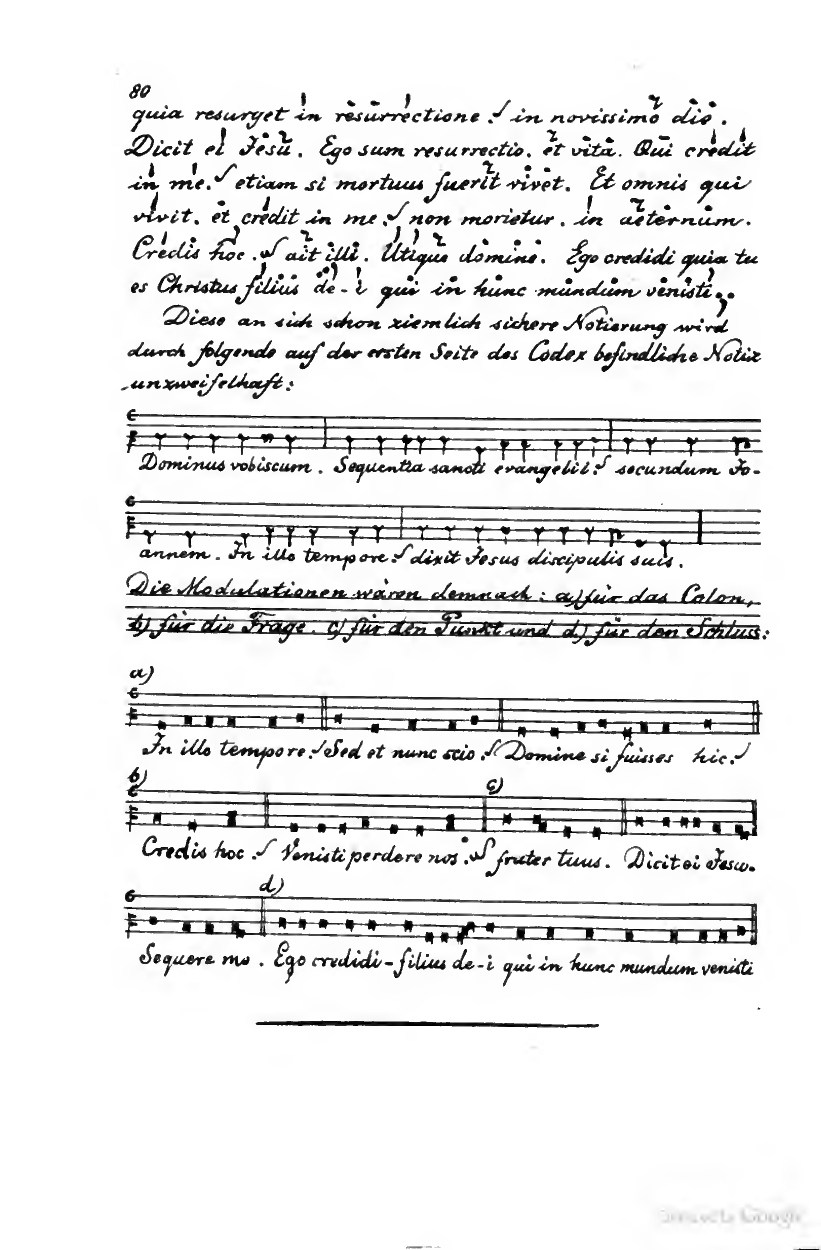 80
quia resurget in resurrectione : in novissimo die .
Dicit ei Jesu . Ego sum resurrectio . et vita . Qui credit
in me . etiam si mortuus fuerit vivet . Et omnis qui
vivit . et credit in me : non morietur . in aeternum .
Credis hoc . ait illi . Utique domine . Ego credidi quia tu
es Christus filius de - i qui in hunc mundum venisti .
Diese an sich schon ziemlich sichere Notierung wird
durch folgende auf der ersten Seite des Codex befindliche Notiz
unzweifelhaft :
C
Dominus vobiscum . Sequentia sancti evangelii : secundum Jo-
C
annem . In illo tempore : dixit Jesus discipulis suis .
Die Modulationen wären demnach : a) für das Colon,
b) für die Frage . c) für den Punkt und d) für den Schluss :
a)
C
In illo tempore : Sed et nunc scio : Domine si fuisses hic :
b) c)
C
Credis hoc . Venisti perdere nos . frater tuus . Dicit ei Jesu .
d)
C
Sequere me . Ego credidi - filius de - i qui in hunc mundum venisti
Google